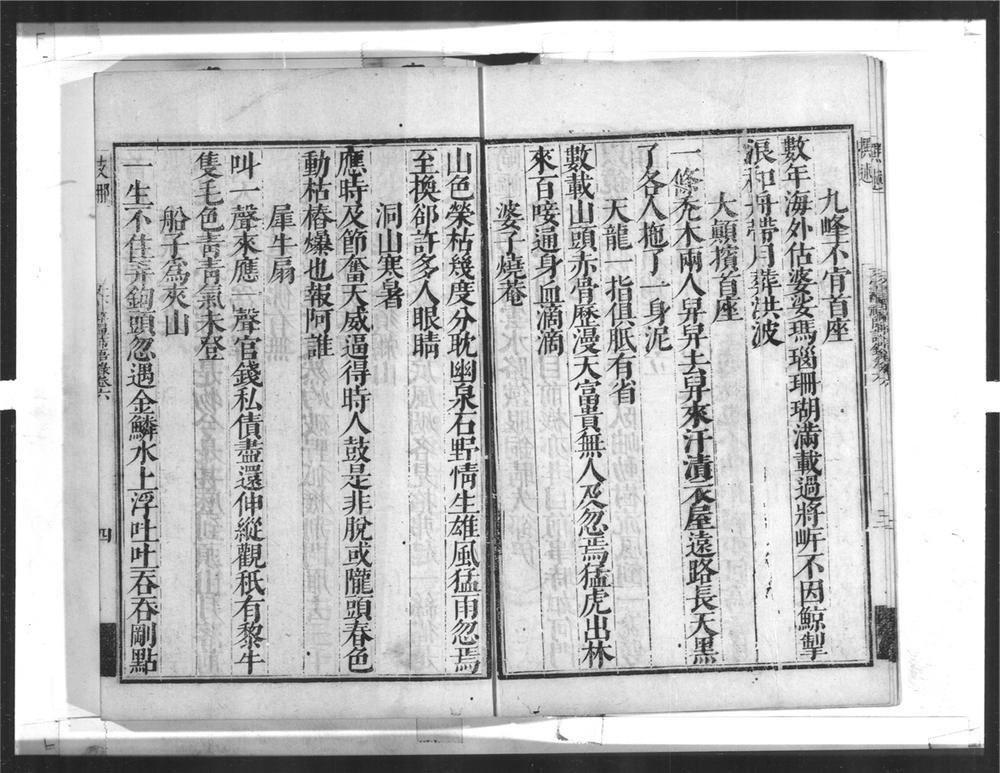 九峰不肯首座
數年海外估婆娑瑪瑙珊瑚滿載過將岍不因鯨掣
浪和舟帶月葬洪波
大顛擯首座
一條禿木兩人舁舁去舁來汗漬衣屋遠路長天黑
了各人拖了一身泥
天龍一指俱胝有省
數載山頭赤骨歷漫大富貴無人及忽焉猛虎出林
來百咬通身血滴滴
婆子燒菴
山色榮枯幾度分耽幽泉石野情生雄風猛雨忽焉
至換卻許多人眼睛
洞山寒暑
應時及節奮天威逼得時人鼓是非脫或隴頭春色
動枯樁爆也報阿誰
犀牛扇
叫一聲來應一聲官錢私債盡還伸縱觀秖有黎牛
隻毛色青青氣未登
船子為夾山
一生不
鉤頭忽遇金鱗水上浮吐吐吞吞剛點
四